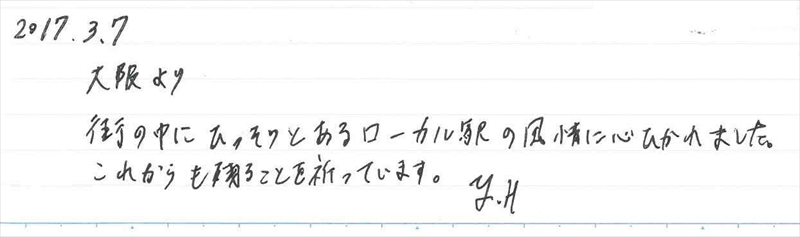 2017.3.7
大阪より
街の中にひっそりとあるローカル駅の風情に心ひかれました。
これからも残ることを祈っています。
Y.H